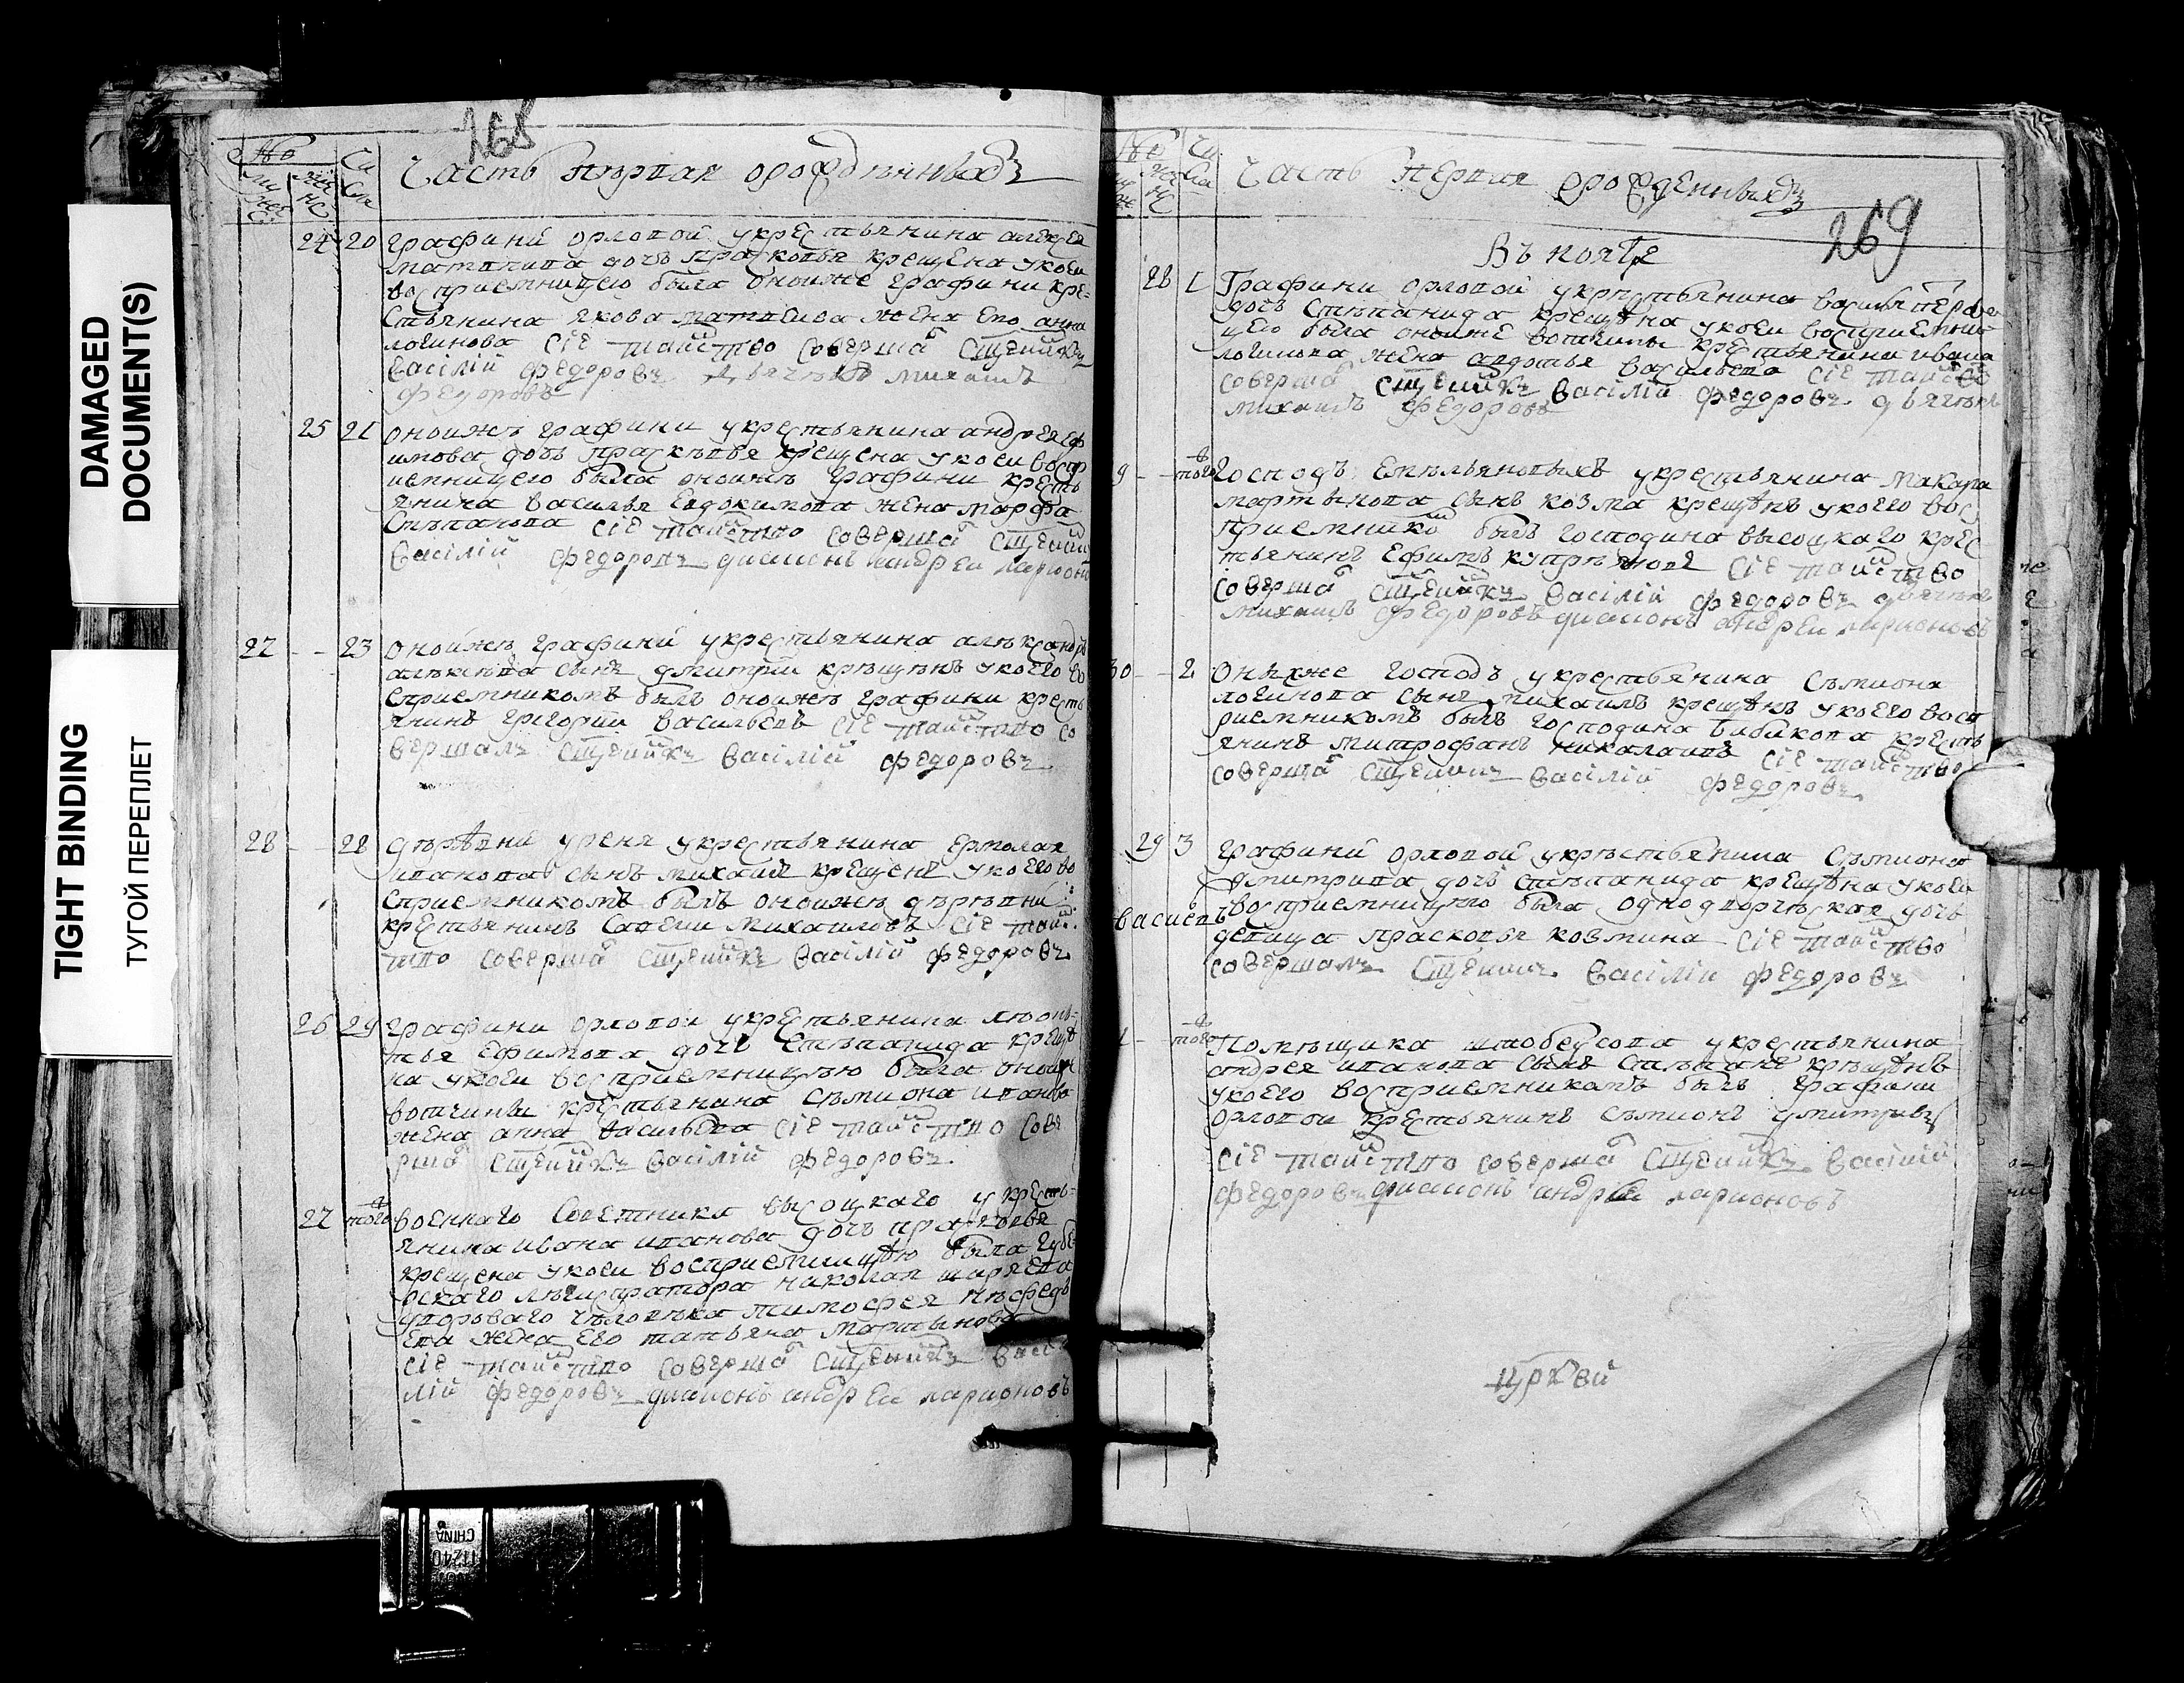 DAMAGED
DOCUMENT(S)
TIGHT BINDING
ТУГОЙ ПЕРЕПЛЕТ
268
Часть первая о рожденныхъ
24 20 Графини орловой у крестьянина алексея
дочь прасковья крещена у коеи
восприемницею была оноиже графини кре-
стьянина якова матвеива жена его анна
логинова сіе таиство соверша сщенникъ
василій федоровъ дьячекъ михаилъ
федоровъ
25 21 оноижъ графини у крестьянина андрея еф
имова дочь праскъвья крещена у коеи воспр
иемницею была оноижъ графини кресть
янина василья евдокимова жена марфа
стъпанова сіе таиство соверша сщенни
василій федоровъ диаконъ андреи ларионо
27 - - 23 оноижъ графини у крестьянина алъксандръ
алъкъева сынъ дмитрии кръщънъ у коего во
сприемникомъ былъ оноижъ графини кресть
янинъ григорий васильевъ сіе таиство со
вершалъ сщенникъ василій федоровъ
28 - - 28 дъръвни уреня у крестьянина ермолая
иванова сынъ михаилъ крещенъ у коего во
сприемникомъ былъ оноижъ дъръвни
крестьянинъ савели михаиловъ сіе таи
тво соверша сщенникъ василій федоровъ
26 29 графини орловои у крестьянина лъонь-
тья ефимова дочь стъпанида креще
на у коеи восприемницъю была оноиж
вотчины крестьянина съмиона иванова
жена анна васильева сіе таиство сове
рша сщенникъ василій федоровъ
27 того военнаго советника высоцкаго у кресть-
янина ивана иванова дочь прасковья
крещена у коеи восприемницъю была губе
рскаго николая
дворового чъловъка тимофея нъфедь
ева жена его татьяна мартынова
сіе таиство соверша сщенникъ васи
лій федоровъ диаконъ андреи ларионовъ
CHINA
11240
269
часть первия о рожденныхъ
Въ нояб
28 1 Графини орловой у кръстьянина василья
дочь стъпанида крещъна у коеи восприемни
цею была оноиже вотчины крестьянина ивана
логинова жена авдотья васильева сіе таиство
соверша сщенникъ василій федоровъ дьячекъ
михаилъ федоровъ
9 - - того Господъ емъльяновыхъ у крестьянина макара
мартынова сынъ козма крещънъ у коего вос
приемнико былъ господина высоцкаго крес
тьянинъ ефимъ сіе таиство
соверша сщенникъ василій федоровъ дьячекъ
михаилъ федоровъ диаконъ андреи ларионовъ
30 - - 2 Онъхже господъ у крестьянина съмиона
логинова сынъ михаилъ крещънъ у коего восп
риемникомъ былъ господина бибикова кресть
янинъ митрофанъ николаивъ сіе таиство
соверша сщенникъ василій федоровъ
29 3 графини орловой у кръстьянина съмиона
дмитрива дочь стъпанида крещъна у коеи
восприемницъю была однодворчъская дочь
девица прасковья козмина сіе таиство
совершалъ сщенникъ василіи федоровъ
1 - - того Помъщика у крестьянина
андрея иванова сынъ стъпанъ кръщънъ
у коего восприемникамъ былъ графини
орловои крестьянинъ съмионъ дмитривъ
сіе таиство соверша сщенникъ василий
федоровъ диаконъ андреи ларионовъ
цркви